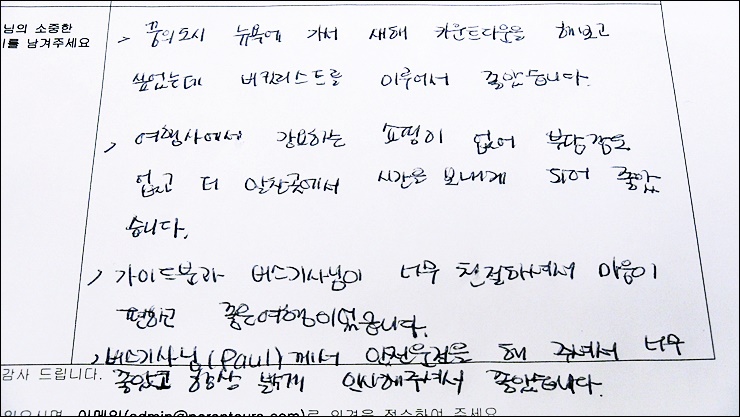 님의 소중한
를 남겨주세요
> 꿈의도시 뉴욕에 가서 새해 카운트다운을 해보고
싶었는데 버킷리스트를 이루어서 좋았습니다.
> 여행사에서 강요하는 쇼핑이 없어 부담감도
없고 더 알찬곳에서 시간을 보내게 되어 좋았
습니다.
> 가이드분과 버스기사님이 너무 친절하셔서 마음이
편하고 좋은여행이었습니다.
> 버스기사님(Paul)께서 안전운전을 해 주셔서 너무
감사 드립니다.
좋았고 항상 밝게 인사해주셔서 좋았습니다.
있으시면 이메일(admin@parantours.com)로 의견을 접수하여 주세요